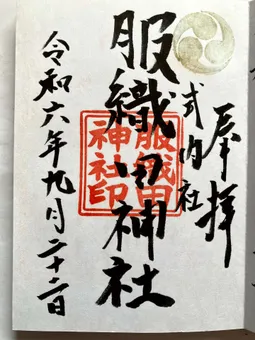 奉拝
式内社
服織田神社
服織田
神社印
令和六年九月二十二日